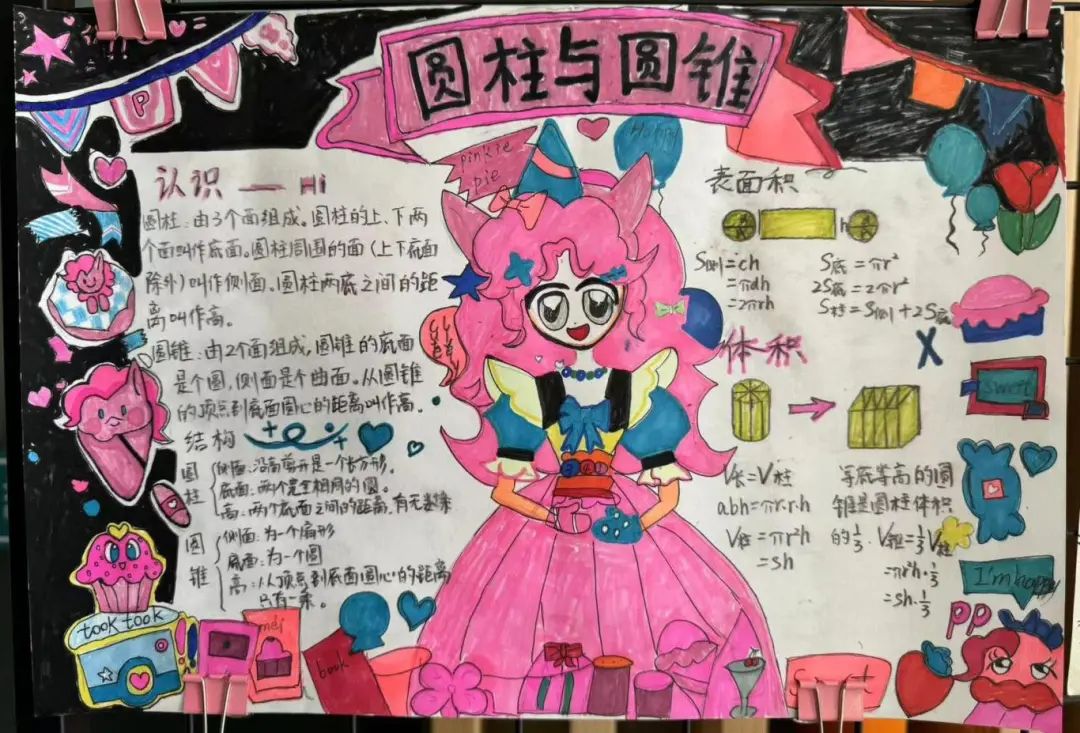 圆柱与圆锥
P
pinkie
pie
Happy
认识 — Hi
圆柱:由3个面组成。圆柱的上、下两
个面叫作底面。圆柱周围的面(上下底面
除外)叫作侧面。圆柱两底之间的距
离叫作高。
圆锥:由2个面组成,圆锥的底面
是个圆,侧面是个曲面。从圆锥
的顶点到底面圆心的距离叫作高。
结构
圆柱
侧面:沿高剪开是一个长方形。
底面:两个完全相同的圆。
高:两个底面之间的距离,有无数条
圆锥
侧面:为一个扇形
底面:为一个圆
高:从顶点到底面圆心的距离
只有一条。
表面积
h
S侧=ch
=πdh
=2πrh
S底=πr²
2S底=2πr²
S柱=S侧+2S底
体积
V长=V柱
abh=πr·r·h
V柱=πr²h
=sh
等底等高的圆
锥是圆柱体积
的⅓.V锥=⅓V柱
=πr²h·⅓
=sh·⅓
sweet
I'm happy
PP
took took
mei
book